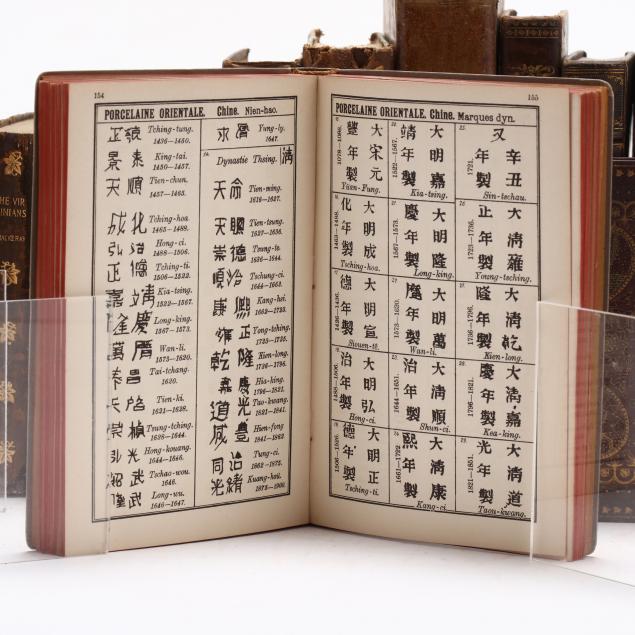 154
PORCELAINE ORIENTALE. Chine. Nien-hao.
正統
Tching-tung.
1436-1450.
景泰
King-tai.
1450-1457.
天順
Tien-chun.
1457-1465.
成化
Tching-hoa
1465-1488.
弘治
Hong-ci.
1488-1506.
正德
Tching-ti.
1506-1522.
嘉靖
Kia-tsing.
1522-1567.
隆慶
Long-king.
1567-1573.
萬曆
Wan-li.
1573-1620.
泰昌
Tai-tchang.
1620.
天啟
Tien-ki.
1621-1628.
Tsung-tching.
1628-1644.
弘光
Hong-kouang.
1644-1646.
紹武
Tschao-wou.
1646.
隆武
Long-wu.
1646-1647.
Yung-ly.
1647.
Dynastie Thsing.
清
天命
Tien-ming.
1616-1627.
天聰
崇德
1636-1644.
順治
Tschung-ci.
1644-1662.
康熙
Kang-hei.
1662-1723.
雍正
Yong-tching.
1723-1736.
乾隆
Kien-long.
1736-1796.
嘉慶
Hia-king.
1796-1821.
道光
Tao-kwang.
1821-1841.
咸豐
Hien-fong
1841-1862
同治
Tung-ci.
1862-1875.
光緒
Kuang-hsi.
155
PORCELAINE ORIENTALE. Chine. Marques dyn.
大宋元
豐年製
1078-1086.
Yuen-Fung.
大明成
化年製
1465-1488.
Tching-hoa.
大明宣
德年製
1426-1436.
Siouen-té.
大明弘
治年製
1488-1506.
Hong-ci.
大明正
德年製
1506-1526.
Tsching-ti.
大明嘉
靖年製
1522-1567.
Kia-tsing.
大明隆
慶年製
1567-1573.
Long-king.
大明萬
曆年製
1573-1620.
Wan-li.
大清順
治年製
1644-1661.
Shun-ci.
大清康
熙年製
1661-1722
Kang-ci.
又辛丑
年製
1721.
Sin-tschau.
大清雍
正年製
1723-1736.
Young-tsching.
大清乾
隆年製
1736-1796.
Kien-long.
大清嘉
慶年製
1796-1821.
Kea-king.
大清道
光年製
1821-1851.
Taou-kwang.
THE VIR
INIANS